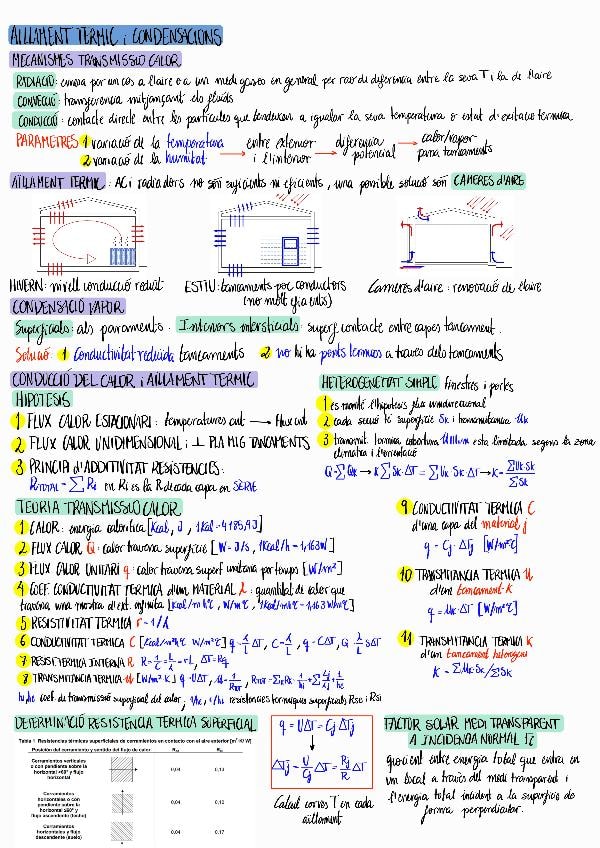 AÏLLAMENT TERMIC i CONDENSACIONS
MECANISMES TRANSMISSIO CALOR
RADIACIÓ: emesa per un cos a l'aire o a un medi gaseós en general per raó de diferencia entre la seva T i la de l'aire
CONVECCIÓ: transferencia mitjançant els fluids
CONDUCCIÓ: contacte directe entre les particules que tendeixen a igualar la seva temperatura o estat d'exitacio termica
PARAMETRES 1 variació de la temperatura → entre exterior → diferencia → calor/vapor
2 variació de la humitat → i l'interior potencial per a tancaments
AÏLLAMENT TERMIC: AC i radiadors no són suficients ni eficients, una possible solució són CAMERES D'AIRE
HIVERN: nivell conducció reduït
ESTIU: tancaments poc conductors
(no molt)
Cameres d'aire: renovació de l'aire
CONDENSACIÓ VAPOR
Superficials: als paraments. Interiors intersticials: superf. contacte entre capes tancament.
Solució: 1 Conductivitat reduida tancaments 2 no hi ha ponts termics a traves dels tancaments
CONDUCCIÓ DEL CALOR i AÏLLAMENT TERMIC
HIPOTESIS
1 FLUX CALOR ESTACIONARI: temperatures cnt → Flux cnt
2 FLUX CALOR UNIDIMENSIONAL i ⊥ PLA MIG TANCAMENTS
3 PRINCIPI D'ADDITIVITAT RESISTENCIES:
R TOTAL = ∑ Ri on Ri es la R de cada capa en SÈRIE
HETEROGENEITAT SIMPLE finestres i portes
1 es manté l'hipotesis flux unidireccional
2 cada secció té superficie Sk i transmitancia Uk
3 transmit. termica cobertura está limitada segons la zona
climatica i l'orientació
Q = ∑ Qk → K ∑ Sk · ΔT = ∑ Uk Sk · ΔT → K = ∑Uk·Sk / ∑Sk
TEORIA TRANSMISSIO CALOR
1 CALOR: energia calorifica [Kcal, J, 1Kcal = 4185,5J]
2 FLUX CALOR Q: calor travessa superficie [W = J/s, 1Kcal/h = 1,163W]
3 FLUX CALOR UNITARI q: calor travessa superf unitaria per temps [W/m²]
4 COEF. CONDUCTIVITAT TERMICA d'un MATERIAL λ: quantitat de calor que
travessa una mostra d'ext. infinita [Kcal/mhºC, W/mºC, 1Kcal/mhºC = 1,163 W/mºC]
5 RESISTIVITAT TERMICA r = 1/λ
6 CONDUCTIVITAT TERMICA C [Kcal/m²hºC W/m²ºC] q = λ/L ΔT, C = λ/L, q = C ΔT, Q = λ/L S ΔT
7 RESIST TERMICA INTERNA R R = 1/C = L/λ = rL, ΔT = Rq
8 TRANSMITANCIA TERMICA U [W/m² K] q = U ΔT, U = 1/R TOT, R TOT = ∑ R = 1/hi + ∑ Lj/λj + 1/he
hi, he coef. de transmissió superficial del calor, 1/hi, 1/he resistencies termiques superficials Rse i Rsi
9 CONDUCTIVITAT TERMICA C
d'una capa del material j
q = Cj · ΔTj [W/m²ºC]
10 TRANSMITANCIA TERMICA U
d'un tancament K
q = UK · ΔT [W/m²ºC]
11 TRANSMITANCIA TERMICA K
d'un tancament heterogeni
K = ∑Uk·Sk / ∑Sk
DETERMINACIÓ RESISTENCIA TERMICA SUPERFICIAL
Tabla 1 Resistencias térmicas superficiales de cerramientos en contacto con el aire exterior [m²·K/W]
Posición del cerramiento y sentido del flujo de calor Rse Rsi
Cerramientos verticales
o con pendiente sobre la
horizontal >60º y flujo
horizontal
0,04 0,13
Cerramientos
horizontales o con
pendiente sobre la
horizontal ≤60º y
flujo ascendente (techo)
0,04 0,10
Cerramientos
horizontales y flujo
descendente (suelo)
0,04 0,17
q = U ΔT = Cj ΔTj
↓
ΔTj = U/Cj ΔT = Rj/R ΔT
Calcul corves T en cada
aïllament
FACTOR SOLAR MEDI TRANSPARENT
A INCIDENCIA NORMAL
quocient entre energia total que entra en
un local a través del medi transparent i
l'energia total incident a la superficie de
forma perpendicular.